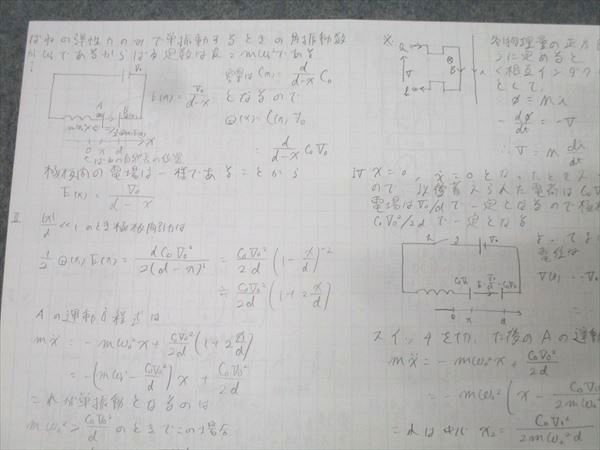 ばねの弾性力のみで単振動するときの角振動数
がω₀であるからばね定数はk=mω₀²である
V₀
E(x)=V₀/(d-x)
容量はC(x)=d/(d-x) C₀
となるので
Q(x)=C(x)V₀
=d/(d-x) C₀V₀
A
0 x d
x
極板間の電場は一様であることから
E(x)=V₀/(d-x)
Ⅱ |x|/d ≪1のとき極板間引力は
1/2 Q(x)E(x)=dC₀V₀²/2(d-x)²=C₀V₀²/2d (1-x/d)⁻²
≒C₀V₀²/2d (1+2x/d)
Aの運動方程式は
mẍ=-mω₀²x+C₀V₀²/2d (1+2x/d)
=-(mω₀²-C₀V₀²/d²)x+C₀V₀²/2d
これが単振動となるのは
mω₀²>C₀V₀²/d²のときでこの場合
各物理量の正方向
うに定めると
相互インダク
として、
Φ=Mi
-dΦ/dt=-V
∴V=M di/dt
Ⅳ x=0, ẋ=0となったとき
ので、以後蓄えられた電荷はC₀V₀
電場はV₀/dで一定となるので極板
C₀V₀²/2dで一定となる
よって
電位は
V(x)=
V₀
0 x d
スイッチを切った後のAの運動
mẍ=-mω₀²x+C₀V₀²/2d
=-mω₀²(x-C₀V₀²/2mω₀²d
これは中心x₂=C₀V₀²/2mω₀²d